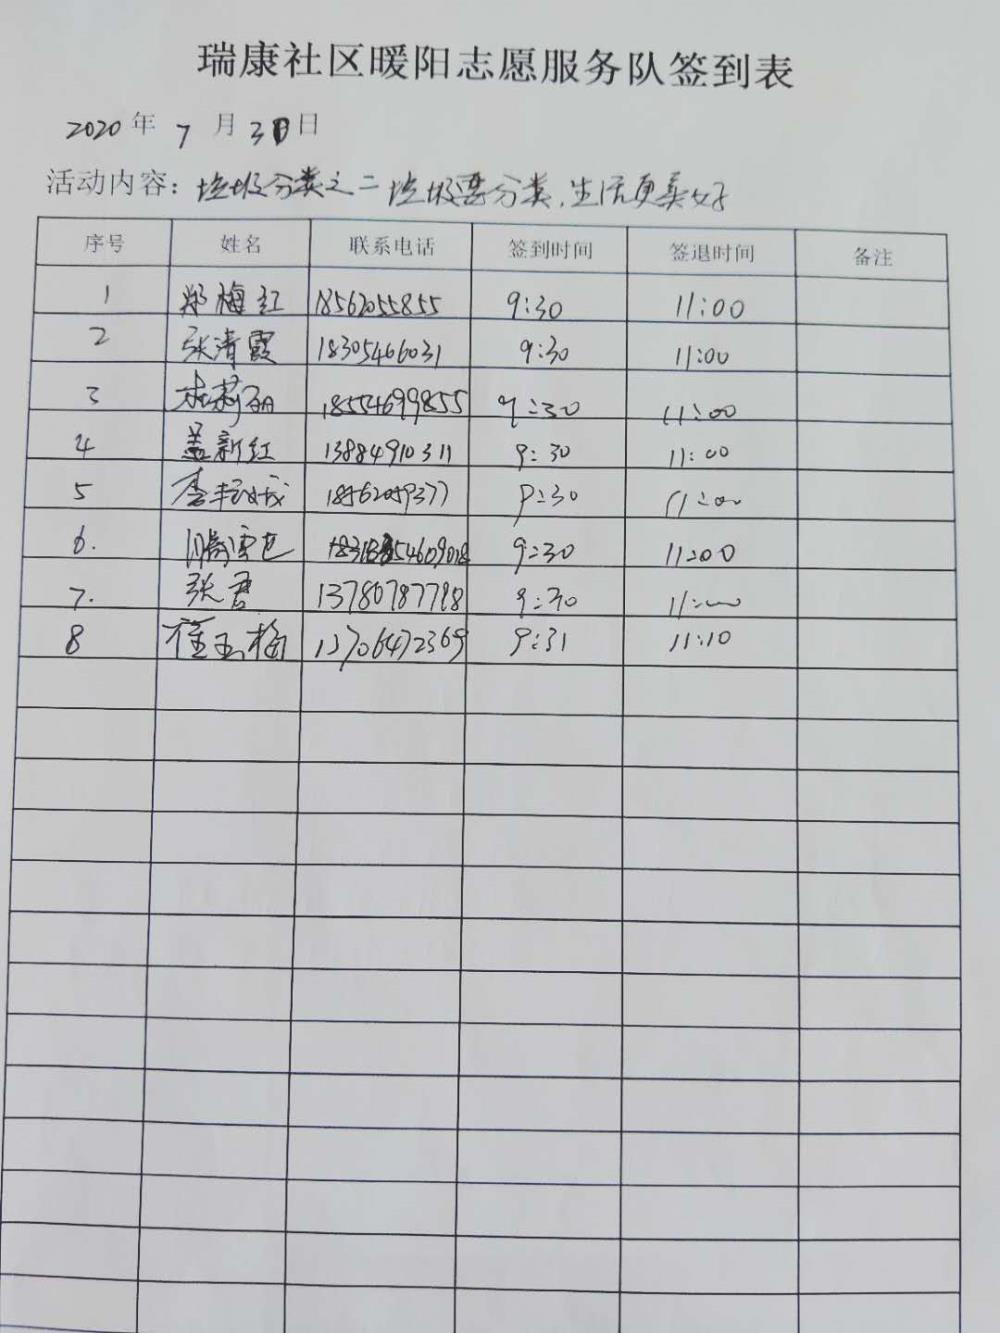 瑞康社区暖阳志愿服务队签到表
2020年 7 月 31日
活动内容：垃圾分类之二 垃圾要分类，生活更美好
序号 姓名 联系电话 签到时间 签退时间 备注
1 郑梅红 18562055855 9:30 11:00
2 张清霞 18305466031 9:30 11:00
3 18554699855 9:30 11:00
4 盖新红 13884910311 9:30 11:00
5 李 18562059377 9:30 11:00
6. 9:30 11:00
7. 张君 13780787798 9:30 11:00
8 崔玉梅 13706472369 9:31 11:10